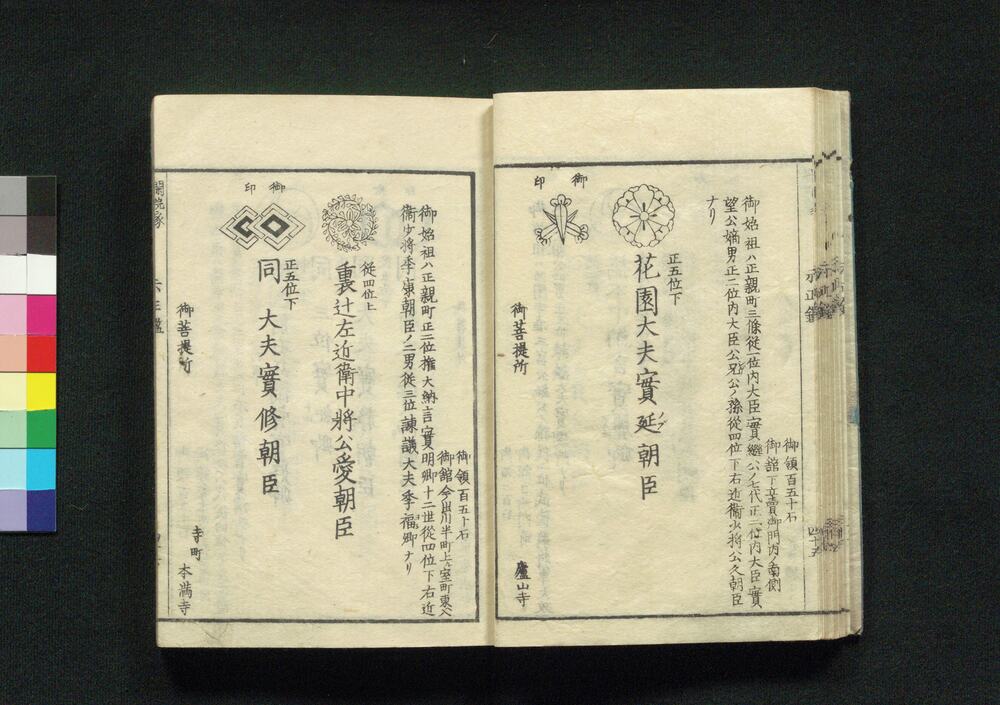 御領百五十石
御舘下立賣御門内南側
御始祖ハ正親町三條従一位内大臣實繼公ノ七代正二位内大臣實
望公嫡男正二位内大臣公兄公ノ孫従四位下右近衛少将公久朝臣
ナリ
正五位下
花園大夫實延朝臣
御印
御菩提所
廬山寺
御領百五十石
御舘今出川半町上ル室町東ヘ
御始祖ハ正親町正二位権大納言實明卿十二世従四位下右近
衛少将季康朝臣ノ二男従三位諫議大夫季福卿ナリ
従四位上
裏辻左近衛中将公愛朝臣
正五位下
同 大夫實修朝臣
御印
御菩提所
寺町 本満寺